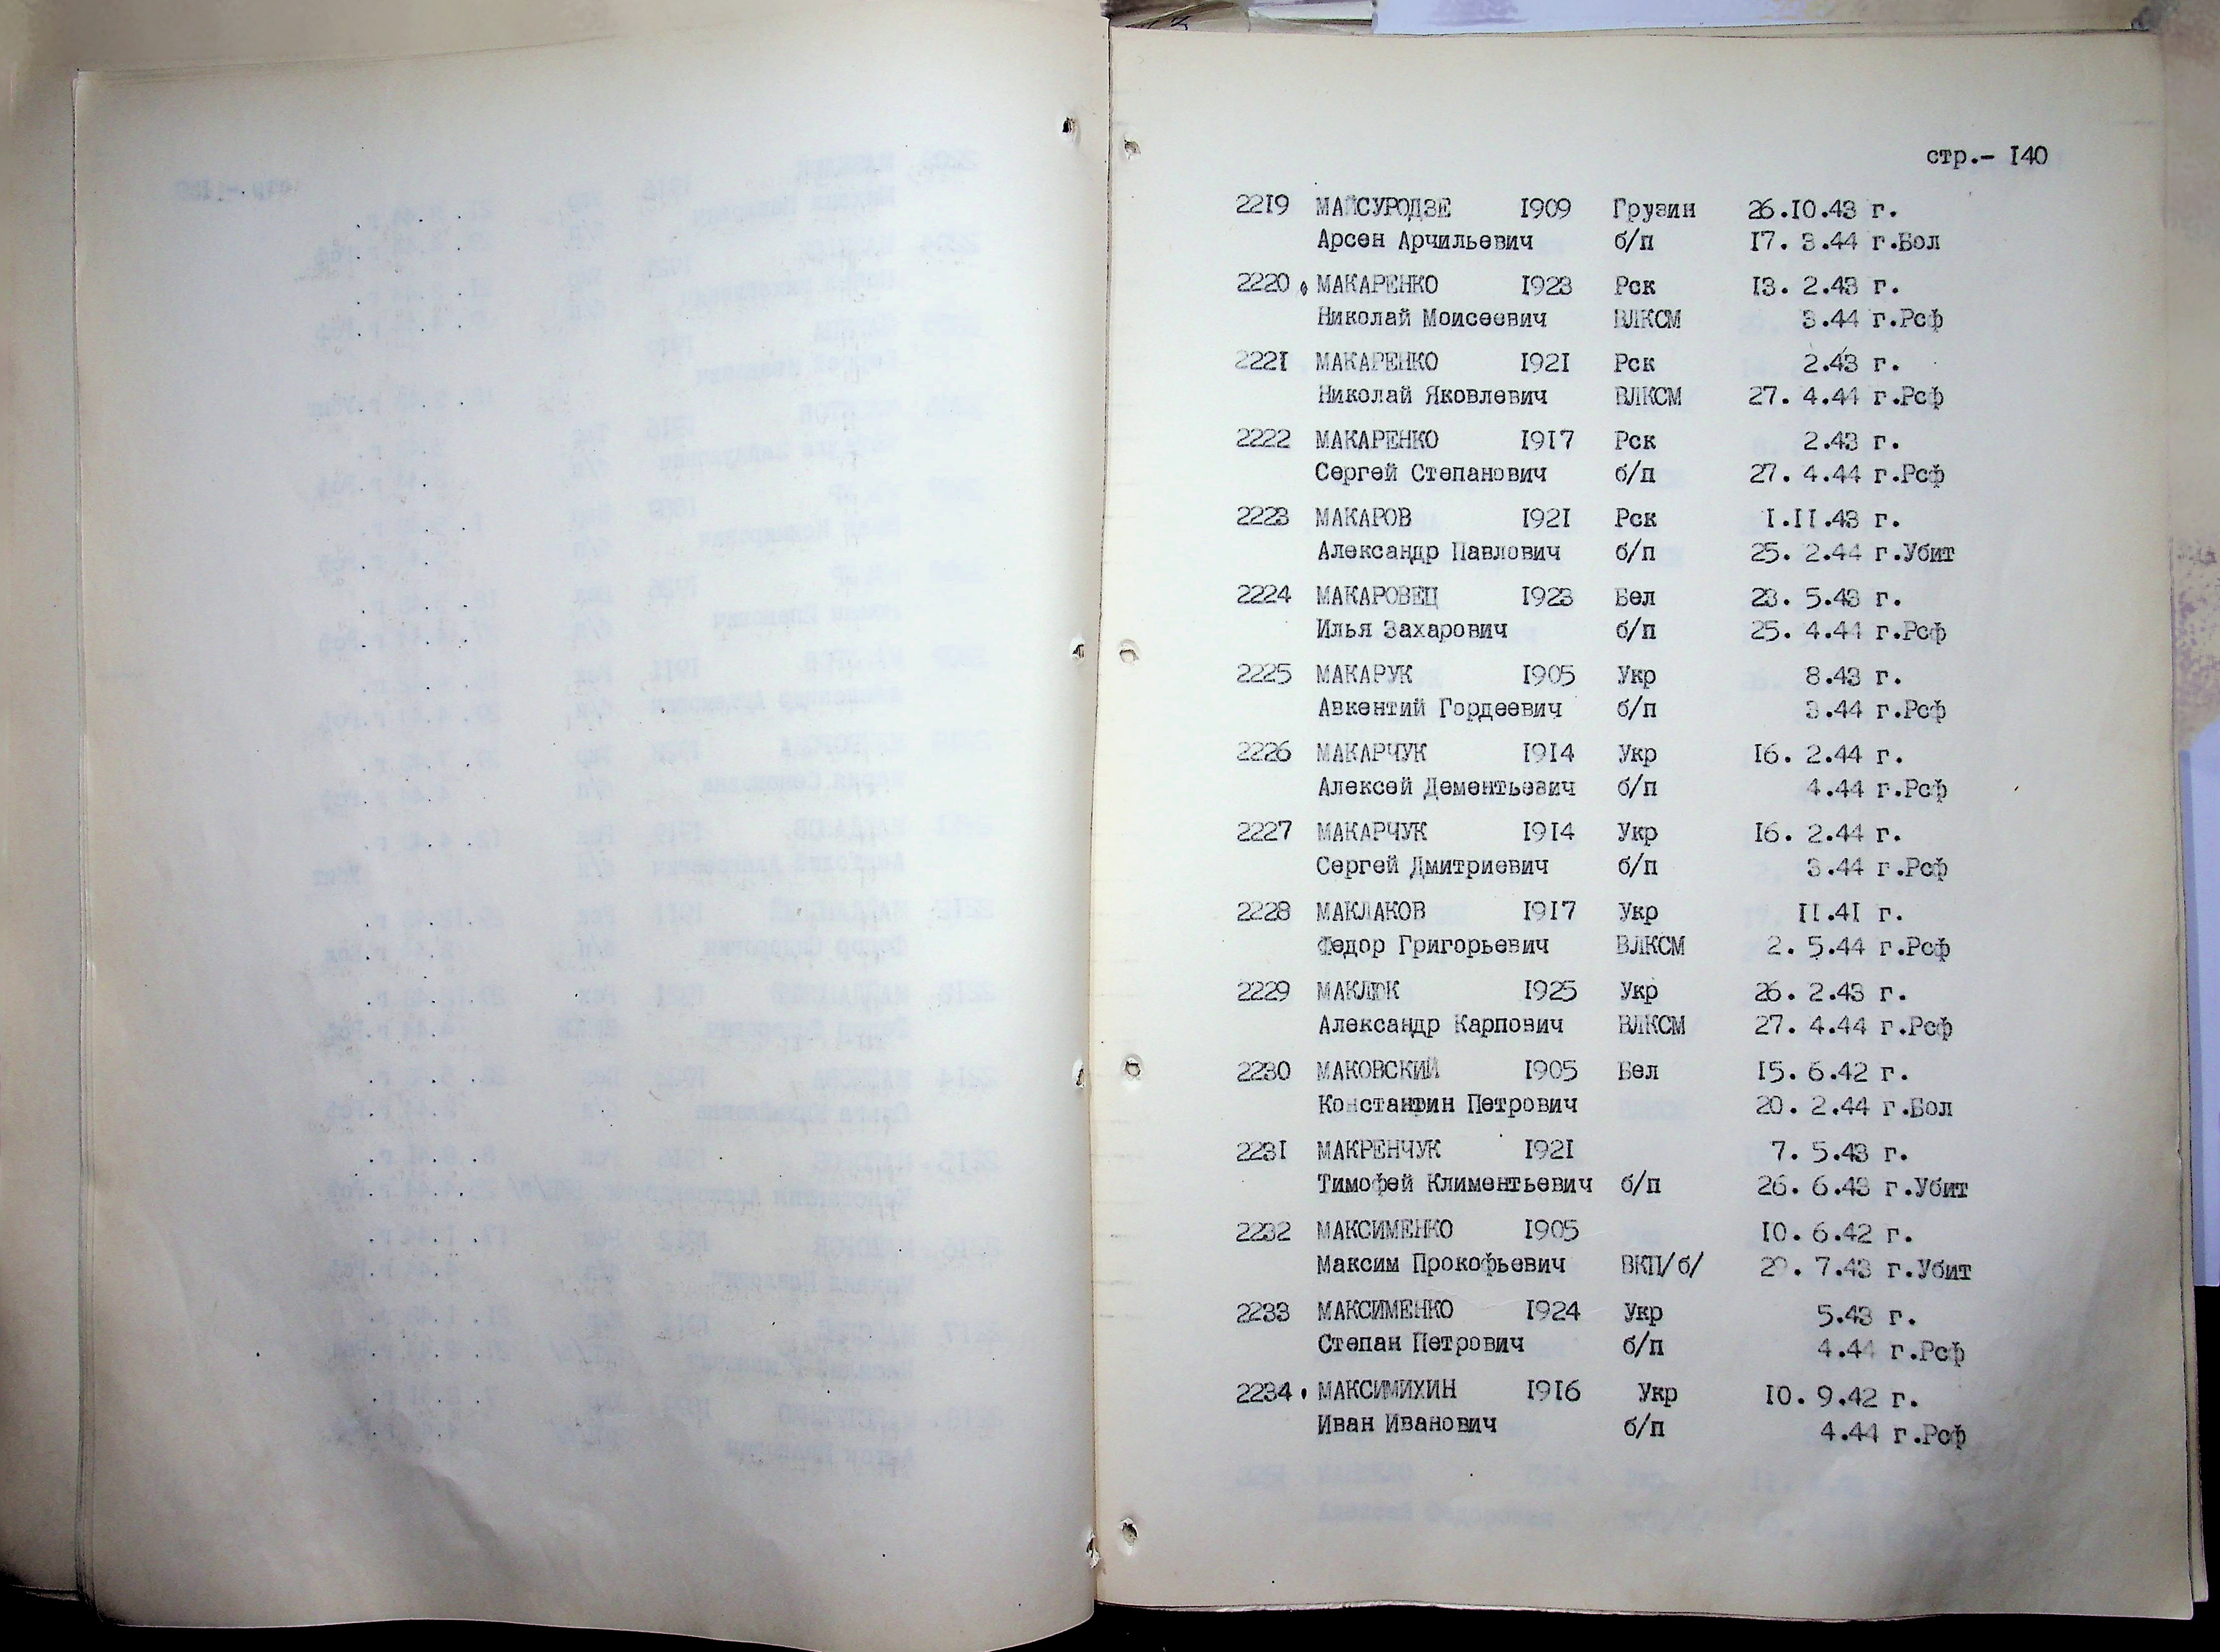 стр.- I40
22I9 МАЙСУРОДЗЕ I909 Грузин 26.I0.43 г.
Арсен Арчильевич б/п I7. 3.44 г.Бол
2220 МАКАРЕНКО I923 Рск I3. 2.43 г.
Николай Моисеевич ВЛКСМ 3.44 г.Рсф
222I МАКАРЕНКО I92I Рск 2.43 г.
Николай Яковлевич ВЛКСМ 27. 4.44 г.Рсф
2222 МАКАРЕНКО I9I7 Рск 2.43 г.
Сергей Степанович б/п 27. 4.44 г.Рсф
2223 МАКАРОВ I92I Рск I.II.43 г.
Александр Павлович б/п 25. 2.44 г.Убит
2224 МАКАРОВЕЦ I923 Бел 23. 5.43 г.
Илья Захарович б/п 25. 4.44 г.Рсф
2225 МАКАРУК I905 Укр 8.43 г.
Авкентий Гордеевич б/п 3.44 г.Рсф
2226 МАКАРЧУК I9I4 Укр I6. 2.44 г.
Алексей Дементьевич б/п 4.44 г.Рсф
2227 МАКАРЧУК I9I4 Укр I6. 2.44 г.
Сергей Дмитриевич б/п 3.44 г.Рсф
2228 МАКЛАКОВ I9I7 Укр II.4I г.
Федор Григорьевич ВЛКСМ 2. 5.44 г.Рсф
2229 МАКЛЮК I925 Укр 26. 2.43 г.
Александр Карпович ВЛКСМ 27. 4.44 г.Рсф
2230 МАКОВСКИЙ I905 Бел I5. 6.42 г.
Константин Петрович 20. 2.44 г.Бол
223I МАКРЕНЧУК I92I 7. 5.43 г.
Тимофей Климентьевич б/п 26. 6.43 г.Убит
2232 МАКСИМЕНКО I905 I0. 6.42 г.
Максим Прокофьевич ВКП/б/ 7.43 г.Убит
2233 МАКСИМЕНКО I924 Укр 5.43 г.
Степан Петрович б/п 4.44 г.Рсф
2234 МАКСИМИХИН I9I6 Укр I0. 9.42 г.
Иван Иванович б/п 4.44 г.Рсф